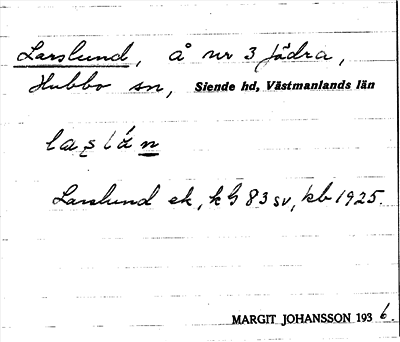 Larslund, å nr 3 Jädra,
Hubbo sn, Siende hd, Västmanlands län
Larslund ek, kG 83 sv, kb 1925.
MARGIT JOHANSSON 1936.